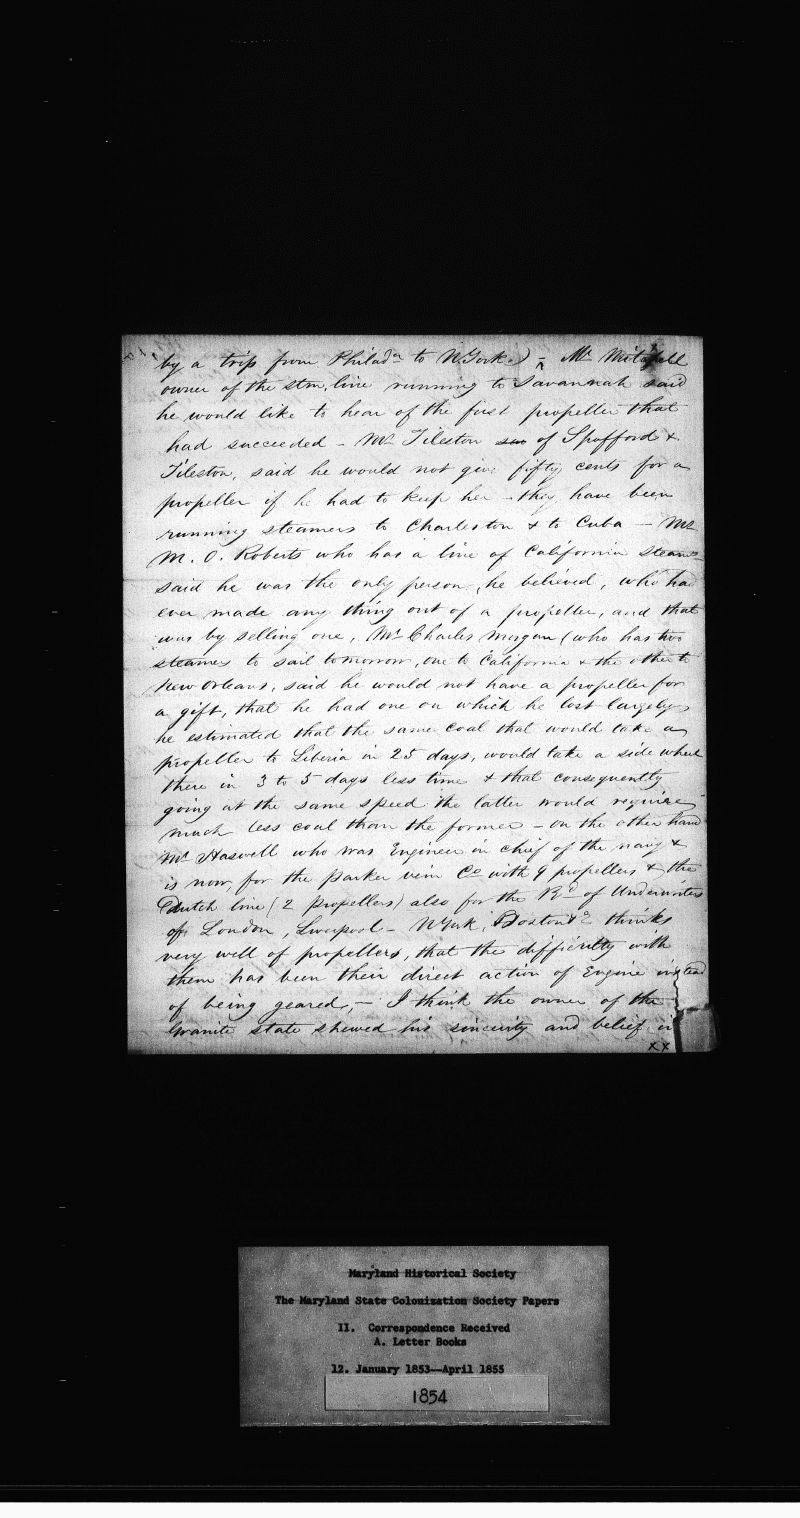 by a trip from Philad^a to N York.) - Mr Mitchell
owner of the stm. line running to Savannah said
he would like to hear of the first propeller that
had succeeded - Mr Tileston of Spofford &
Tileston, said he would not give fifty cents for a
propeller if he had to keep her - they have been
running steamers to Charleston & to Cuba - Mr
M. O. Roberts who has a line of California steamr
said he was the only person, he believed, who had
ever made any thing out of a propeller, and that
was by selling one, Mr Charles Morgan (who has two
steamers to sail tomorrow, one to California & the other to
New Orleans, said he would not have a propeller for
a gift, that he had one on which he lost largely,
he estimated that the same coal that would take a
propeller to Liberia in 25 days, would take a side wheel
there in 3 to 5 days less time & that consequently
going at the same speed the latter would require
much less coal than the former - on the other hand
Mr Haswell who was Engineer in chief of the navy &
is now, for the Parker vein Co with 9 propellers & the
Dutch line (2 propellers) also for the Bd of Underwriters
of London, Liverpool - N York, Boston &c thinks
very well of propellers, that the difficulty with
them has been their direct action of Engine instead
of being geared, - I think the owner of the
Granite State shewed his sincerity and belief in
xx
Maryland Historical Society
The Maryland State Colonization Society Papers
II. Correspondence Received
A. Letter Books
12. January 1853--April 1855
1854